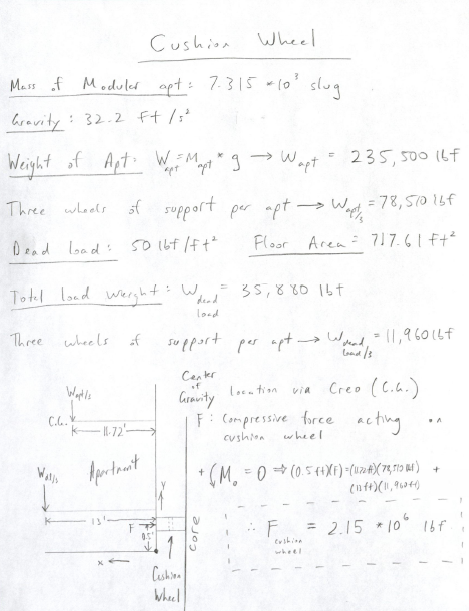 Cushion Wheel
Mass of Modular apt: 7.315 *10³ slug
Gravity: 32.2 ft/s²
Weight of Apt: W_apt = M_apt * g → W_apt = 235,500 lbf
Three wheels of support per apt → W_apt/3 = 78,510 lbf
Dead load: 50 lbf/ft² Floor Area = 717.61 ft²
Total load weight: W_dead load = 35,880 lbf
Three wheels of support per apt → W_dead load/3 = 11,960 lbf
Center of Gravity location via Creo (C.G.)
F: Compressive force acting on cushion wheel
+ M_o = 0 ⇒ (0.5 ft)(F) = (11.72ft)(78,510 lbf) +
(11 ft)(11,960 ft)
∴ F_cushion wheel = 2.15 *10⁶ lbf
W_apt/3
C.G.
11.72'
Apartment
13'
y
F
0.5'
x
Cushion
Wheel
core